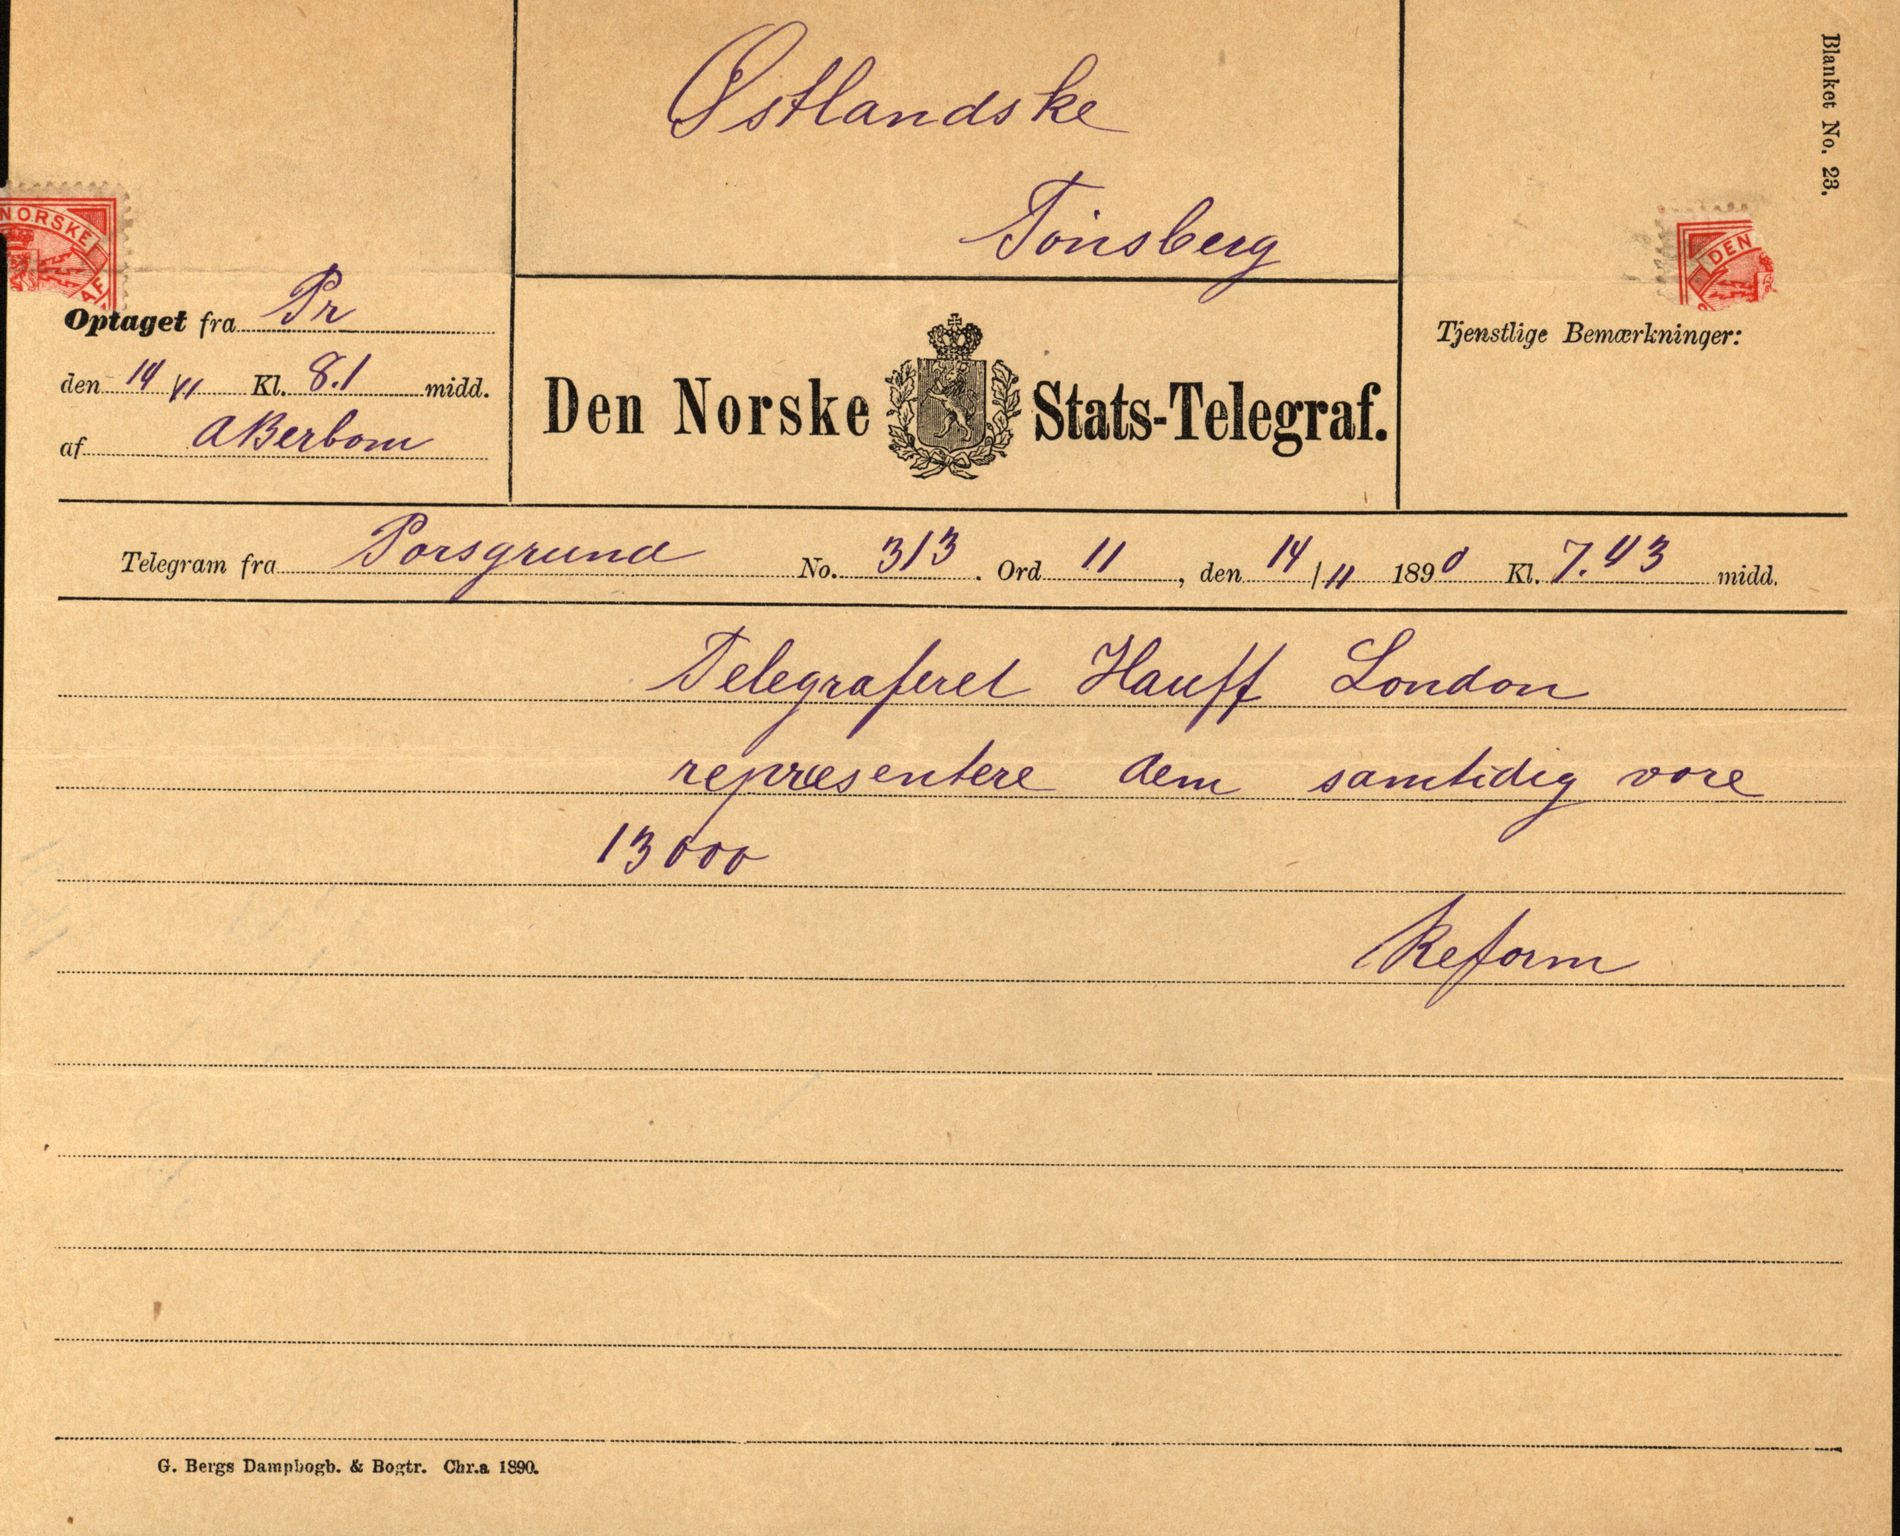 Blanket No. 23.
Østlandske
Tönsberg
NORSKE
AF
DEN
Optaget fra Pr
den 14/11 Kl. 8.1 midd.
af AKerbom
Den Norske Stats-Telegraf.
Tjenstlige Bemærkninger:
Telegram fra Porsgrund No. 313. Ord 11, den 14/11 1890 Kl. 7.43 midd.
Telegraferet Hauff London
repræsentere dem samtidig vore
13000
Reform
G. Bergs Dampbogb. & Bogtr. Chr.a 1890.